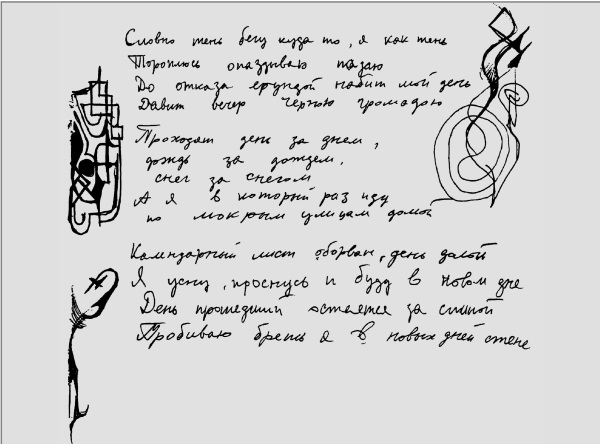 Словно тень бегу куда то, я как тень
Тороплюсь опаздываю падаю
До отказа ерундой набит мой день
Давит вечер чёрною громадою
Проходят день за днем,
дождь за дождем,
снег за снегом
А я в который раз иду
по мокрым улицам домой
Календарный лист оборван, день долой
Я усну, проснусь и буду в новом дне
День прошедший остается за спиной
Пробиваю брешь я в новых дней стене